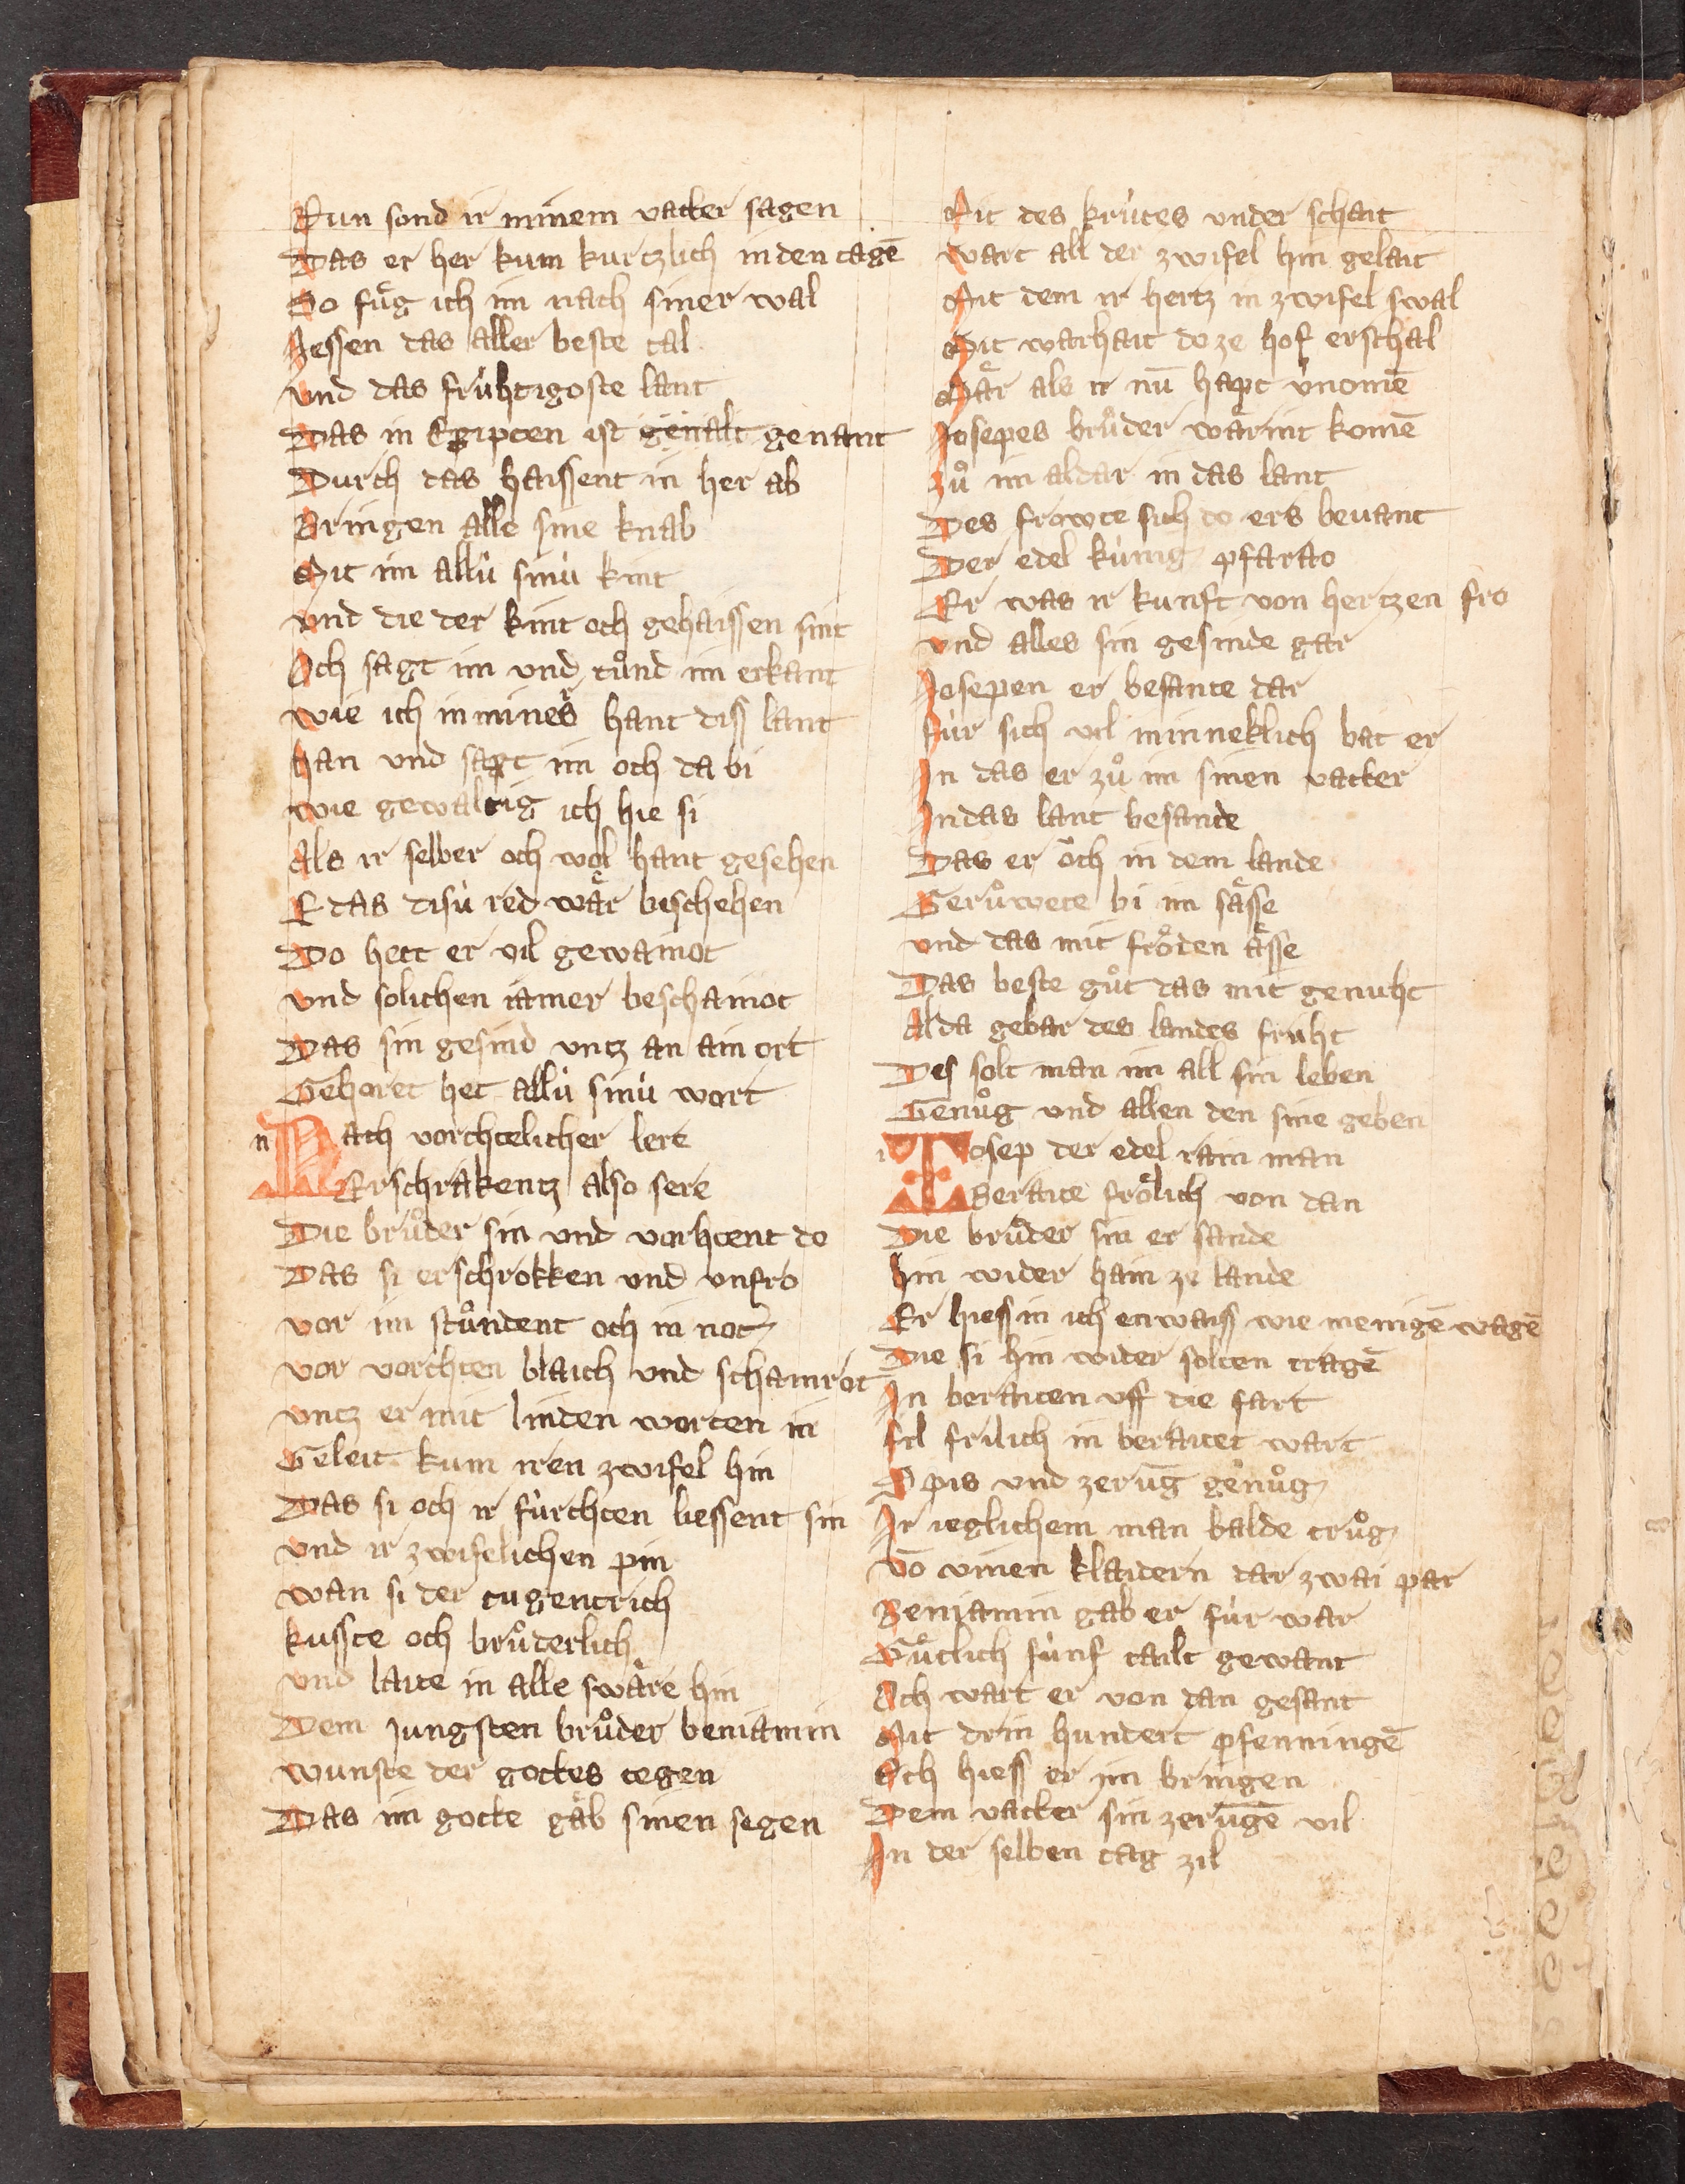 Nun sond ir minem vatter sagen
Das er her kum kurtzlich in den tagē
So fuͤg ich im nach siner wal
Jessen das aller beste tal
vnd das fruͤhtigoste lant
Das in Egipten ist genalt genant
Durch das haissent in her ab
Bringen alle sine knab
Mit im allu̇ sinu̇ kint
vnd die der kint och gehaissen sint
Och sagt im vnd tuͦnd im erkant
wie ich in mineˢ hant diss lant
han vnd sagt im och da bi
wie gewaltig ich hie si
Als ir selber och wol hant gesehen
E das disu̇ red waͤr beschehen
Do hett er vil gewainot
vnd solichen iamer beschainot
Das sin gesind vntz an ain ort
Gehoret het allu̇ sinu̇ wort
n Nach vorchtelicher lere
Erschrakentz also sere
Die bruͦder sin vnd vorhtent do
Das si erschrokken vnd vnfro
vor im stuͦndent och in not
vor vorchten blaich vnd schamrot
vntz er mit linden worten in
Geleit kum iren zwifel hin
Das si och ir fu̇rchten liessent sin
vnd ir zwifelichen pin
wan si der tugentrich
kusste och bruͦderlich
vnd laite in alle swaͤre hin
Dem jungsten bruͦder beniamin
wunste der gottes tegen
Das im gotte gaͤb sinen segen
Mit des kru̇tes vnder schait
wart all der zwifel hin gelait
Mit dem ir hertz in zwifel swal
Mit warhait do ze hof erschal
Maͤr als ir nū hapt v̇nomē
Josepes bruͦder waͤrint komē
Zuͦ im aldar in das lant
Des froͤwte sich do ers bevant
Der edel ku̇nig pfarao
Er was ir kunft von hertzen fro
vnd alles sin gesinde gar
Josepen er besante dar
fu̇r sich vil minneklich bat er
In das er zuͦ im sinen vatter
In das lant besande
Das er oͤch in dem lande
Geruͦwete bi im saͤsse
vnd das mit froͤden aͤsse
Das beste guͦt das mit genuht
Alda gebar des landes fruht
Des solt man im all sin leben
Genuͦg vnd allen den sine geben
i Josep der edel rain man
Beraite froͤlich von dan
Die bruͦder sin er sande
hin wider hain ze lande
Er hiess in ich enwaiss wie menigē wagē
Die si hin wider solten tragē
In beraiten vff die fart
fil frilich in beraitet wart
Spis vnd zerūg genuͦg
Ir ieglichem man balde truͦg
vō vinen klaidern dar zwai par
Beniamin gab er fu̇r war
Guͤtlich fu̇nf tailt gewant
Och wart er von dan gesant
Mit drin hundert pfenningē
Och hiess er im bringen
Dem vatter sin zerūgē vil
In der selben tag zil